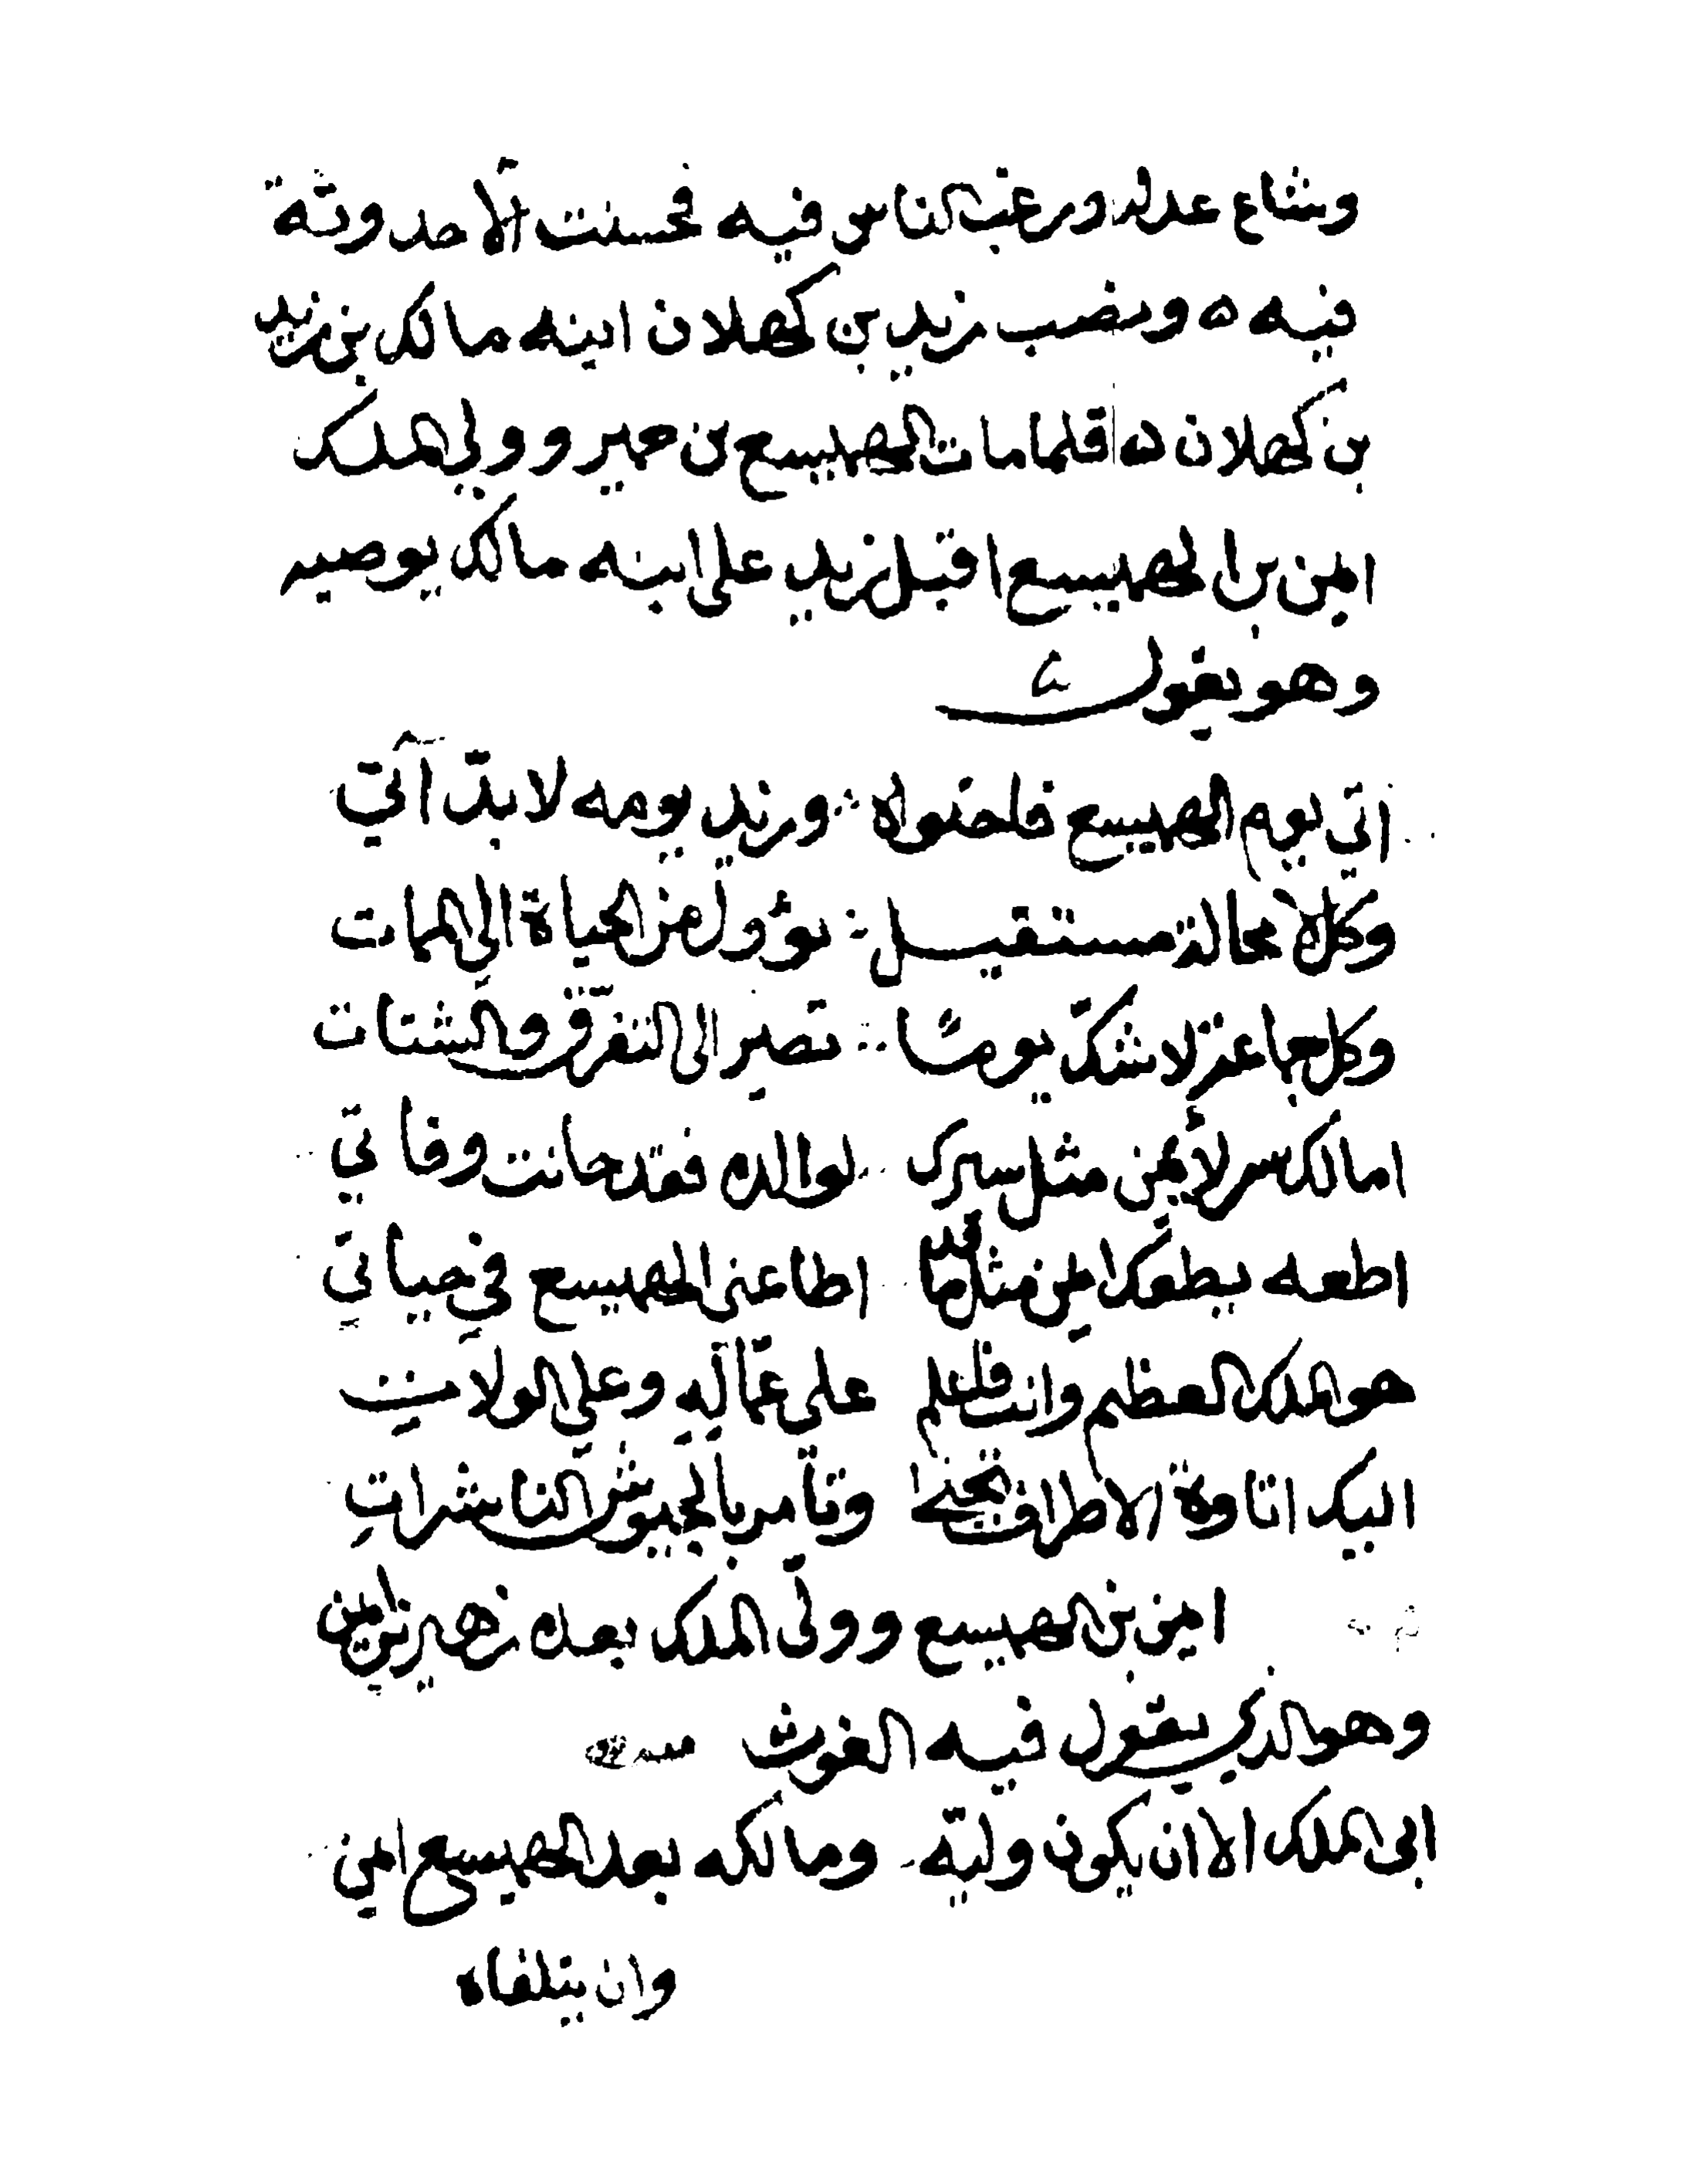 وشاع عدله ورغب الناس فيه فحسنت الأحدوثة
فيه ه ونصب زيد بن كهلان ابنه مالك بن زيد
بن كهلان ه فلما مات الهميسع بن حمير وولي الملك
ايمن بن الهميسع اقبل زيد على ابنه مالك يوصيه
وهو يقول
اتي يوم الهميسع فاحتواه ∴ وزيد يومه لابدّ آتي
وكل لا محالة مستقيل ∴ يؤول من الحياة الي الممات
وكل جماعة لا شكّ يومًا ∴ تصير الى التفرّق والشتات
امالك سر لأيمن مثل سيرى لوالده فقد حانت وفاتي
اطعه يطعك ايمن مثل ما قد اطاعنى الهميسع في حياتي
هو الملك العظيم وانت فاعلم على عمّاله وعلي الولات
اليك اتاوة الاطراف تجبى وتأمر بالجيوش الناشرات
ايمن بن الهميسع وولّي الملك بعده زهير بن ايمن
وهو الذي يقول فيه الغوث
ابى الملك الا ان يكون وليّه ومالكه بعد الهميسع ايمن
وان يتلقاه